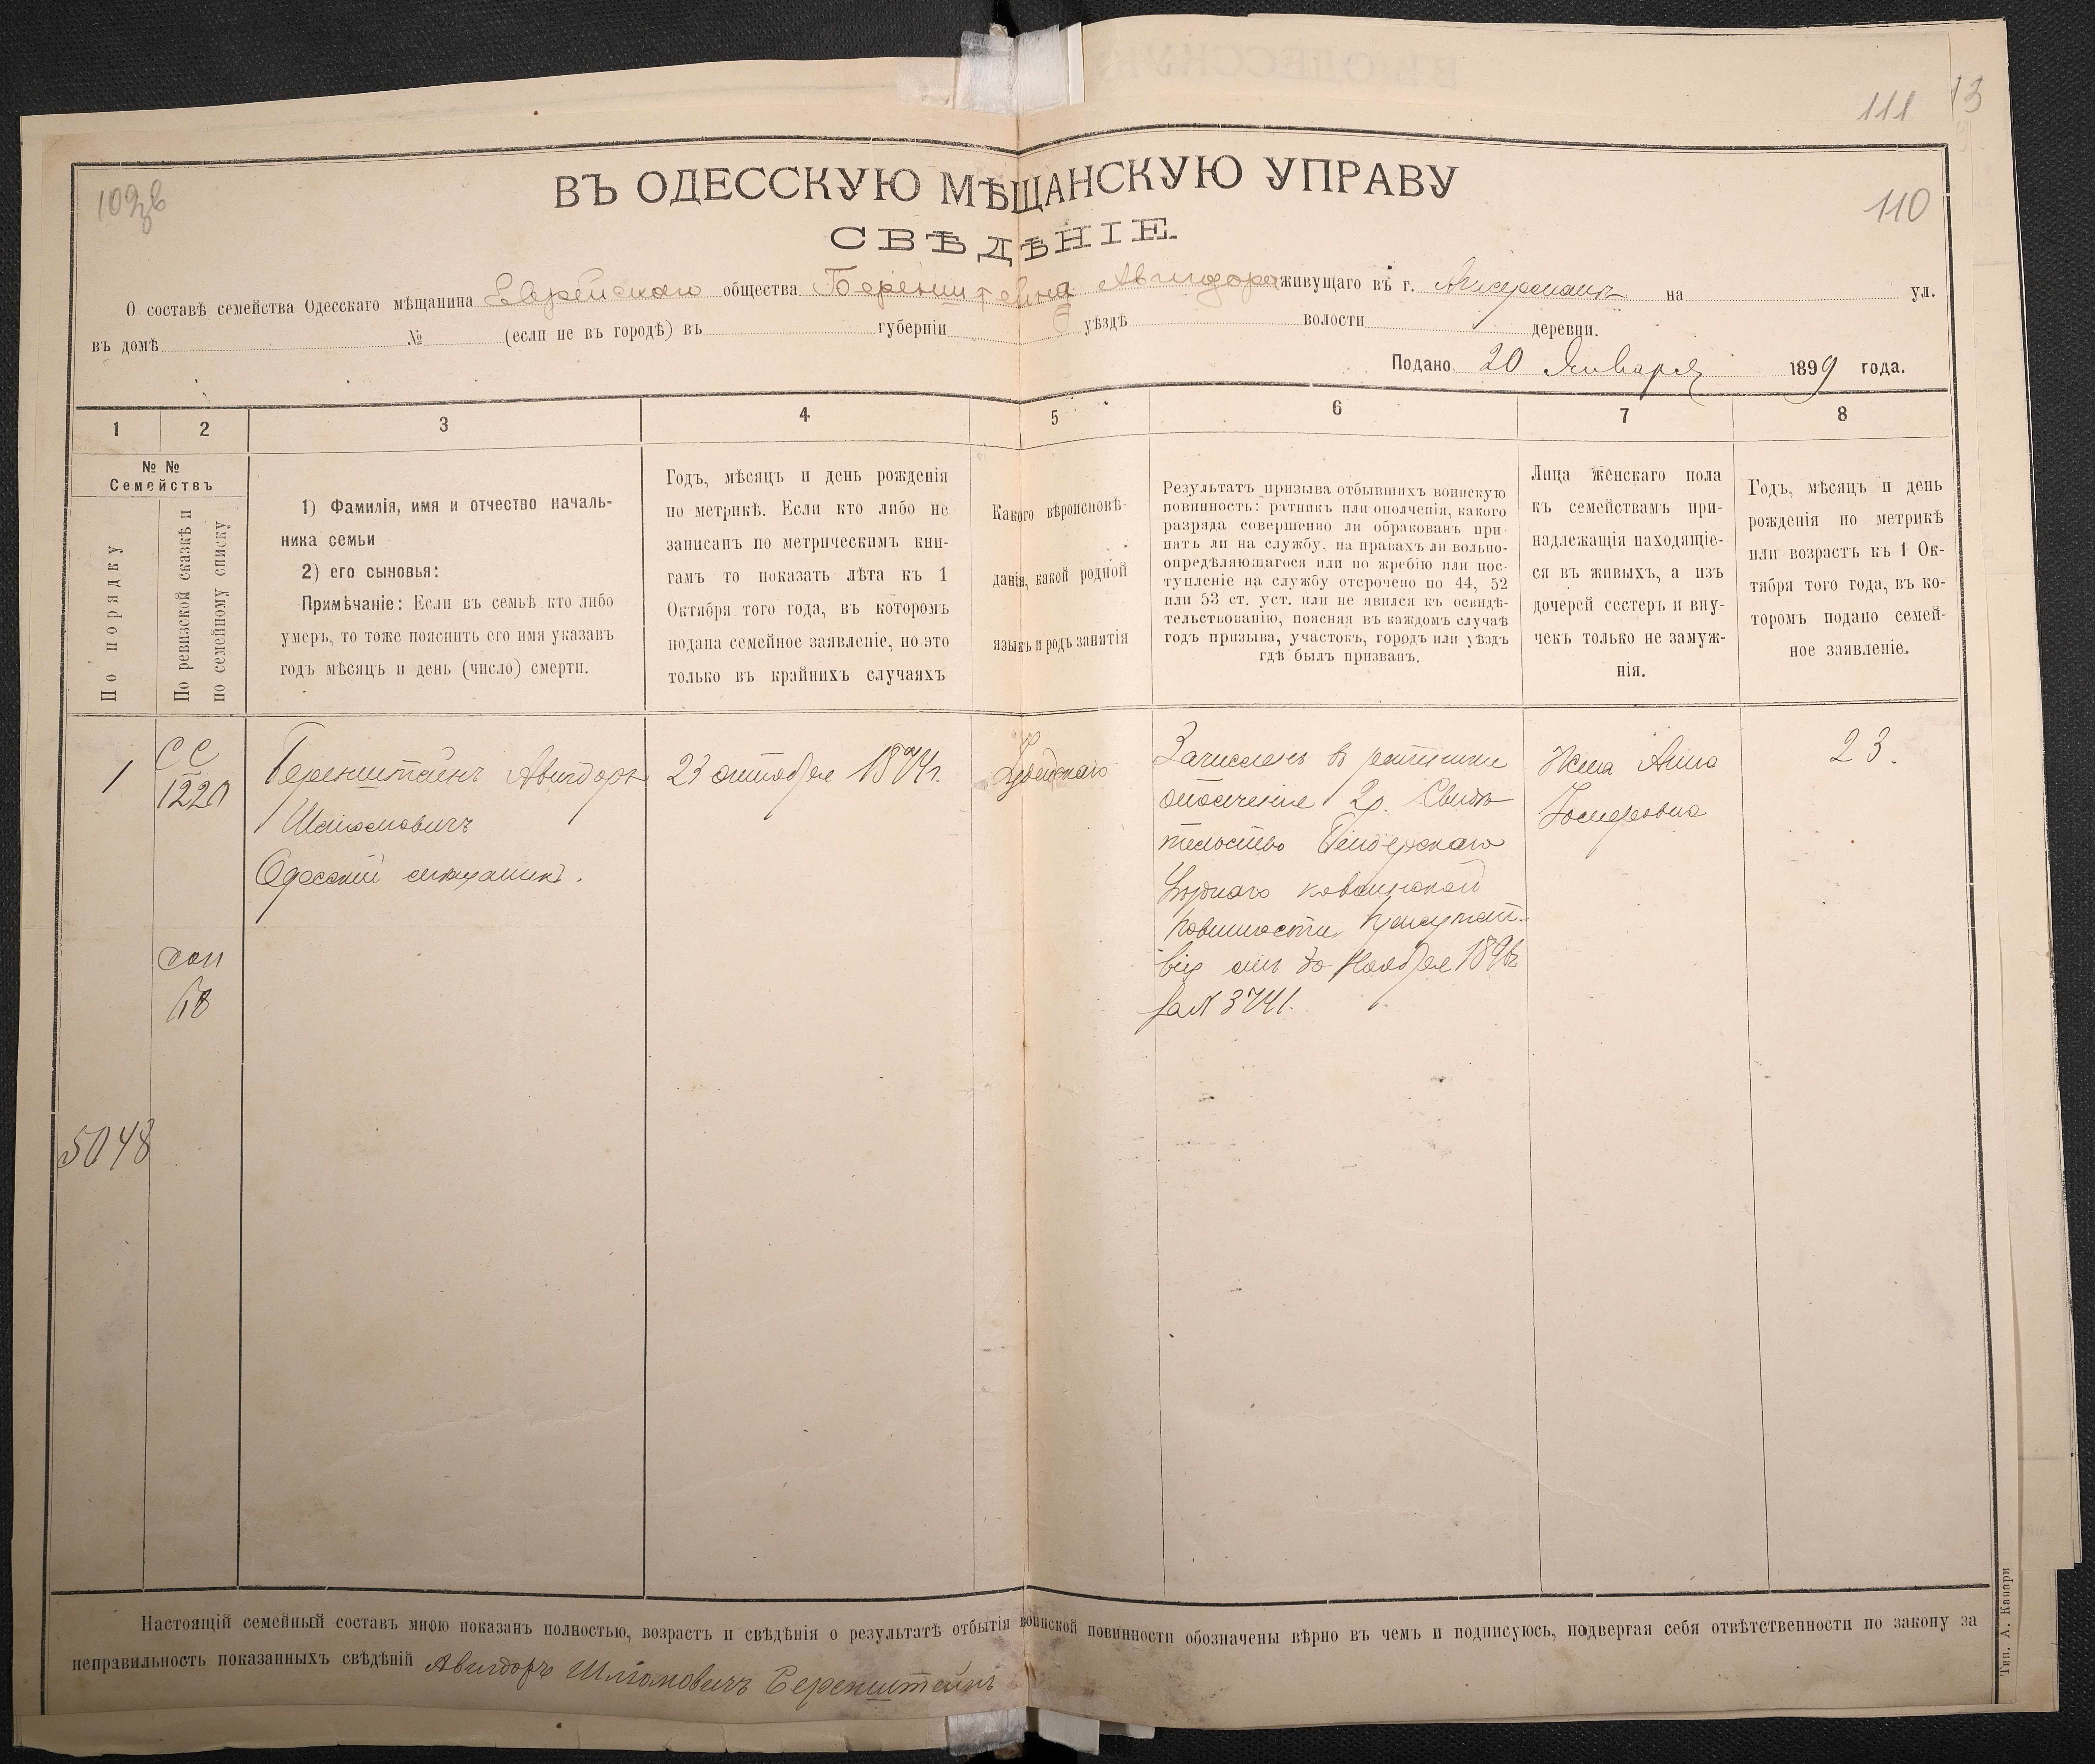 111 13
ВЪ ОДЕССКУЮ МѢЩАНСКУЮ УПРАВУ
110
СВѢДѢНІЕ.
О составѣ семейства Одесскаго мѣщанина Еврейскаго общества Беренштейна Авигдора живущаго въ г. Аккерманѣ на ул.
въ домѣ № (если не въ городѣ) въ губерніи уѣздѣ волости деревни.
Подано 20 Января 1899 года.
1 2 3 4 5 6 7 8
№ №
Семействъ
По порядку
По ревизской сказкѣ и
по семейному списку
1) Фамилія, имя и отчество началь-
ника семьи
2) его сыновья:
Примѣчаніе: Если въ семьѣ кто либо
умеръ, то тоже пояснить его имя указавъ
годъ мѣсяцъ и день (число) смерти.
Годъ, мѣсяцъ и день рожденія
по метрикѣ. Если кто либо не
записанъ по метрическимъ кни-
гамъ то показать лѣта къ 1
Октября того года, въ которомъ
подана семейное заявленіе, но это
только въ крайнихъ случаяхъ
Какого вѣроисповѣ-
данія, какой родной
языкъ и родъ занятія
Результатъ призыва отбывшихъ воинскую
повинность: ратникъ или ополченія, какого
разряда совершенно ли обракованъ при-
нятъ ли на службу, на правахъ ли вольно-
опредѣляющагося или по жребію или пос-
тупленіе на службу отсрочено по 44, 52
или 53 ст. уст. или не явился къ освидѣ-
тельствованію, поясняя въ каждомъ случаѣ
годъ призыва, участокъ, городъ или уѣздъ
гдѣ былъ призванъ.
Лица женскаго пола
къ семействамъ при-
надлежащія находящіе-
ся въ живыхъ, а изъ
дочерей сестеръ и вну-
чекъ только не замуж-
нія.
Годъ, мѣсяцъ и день
рожденія по метрикѣ
или возрастъ къ 1 Ок-
тября того года, въ ко-
торомъ подано семей-
ное заявленіе.
1
СС
1220
Беренштейнъ Авигдоръ
Шліомовичъ
Одесскій мѣщанинъ.
23 октября 1874 г.
Іудейскаго
Зачисленъ в ратники
ополченія 2 р. Свидѣ-
тельство Бендерскаго
Уѣзднаго по воинской
повинности присутст-
вія отъ 30 Ноября 189
за № 3741.
Жена Анна
Іосифовна
23.
5048
Настоящій семейный составъ мною показанъ полностью, возрастъ и свѣдѣнія о результатѣ отбытія воинской повинности обозначены вѣрно въ чемъ и подписуюсь, подвергая себя отвѣтственности по закону за
неправильность показанныхъ свѣдѣній Авигдоръ Шліомовичъ Беренштейнъ
Тип. А. Канари